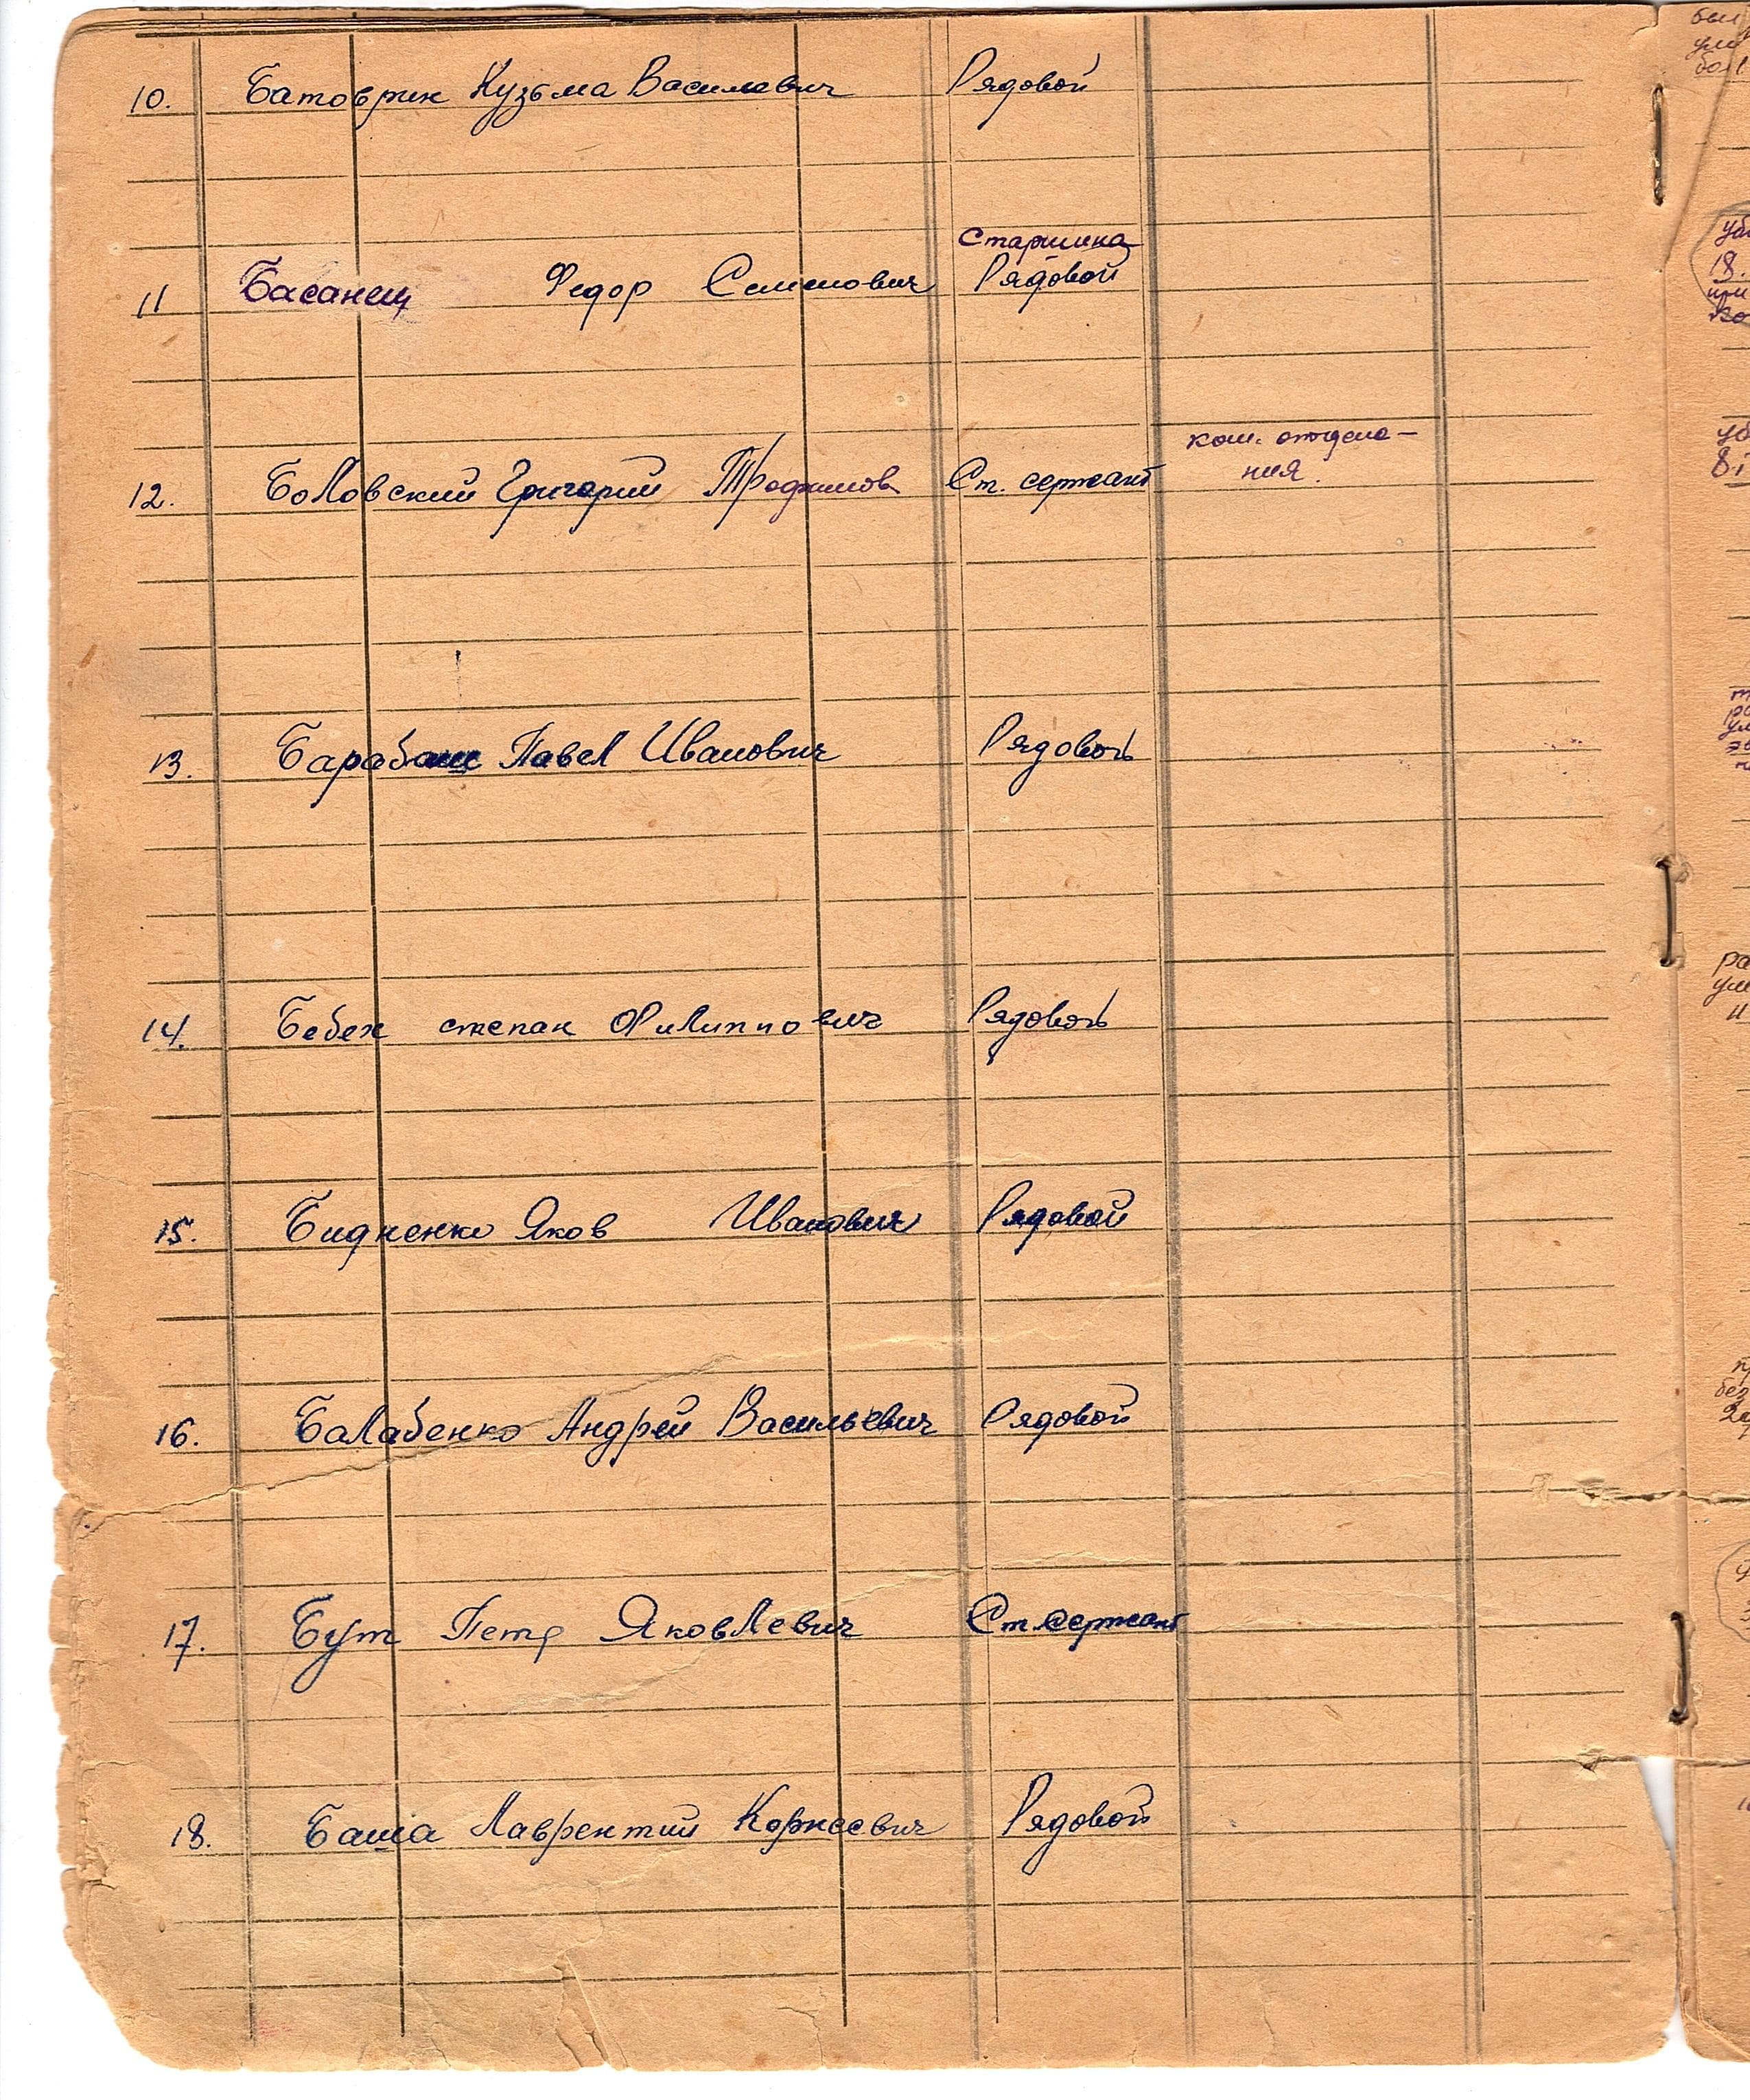 10. Батоврин Кузьма Василевич Рядовой
Старшина
11 Басанец Федор Семенович Рядовой
ком. отделе-
ния.
12. Боловский Григорий Трофимов Ст. сержант
13. Барабаш Павел Иванович Рядовой
14. Бебех степан Филиппович Рядовой
15. Бидненко Яков Иванович Рядовой
16. Балабенко Андрей Васильевич Рядовой
17. Бут Петр Яковлевич Ст. сержант
18. Баша Лаврентий Корнеевич Рядовой